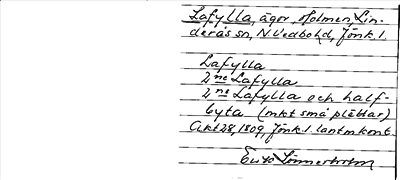 Lafylla, ägor, Holmen, Lin-
derås sn, N Vedbo hd, Jönk. l.
Lafylla
2ne Lafylla
2ne Lafylla och half-
byta (mkt små plättar)
Akt 28, 1809, Jönk. l. lantm.kont.
Ewa Lönnerholm